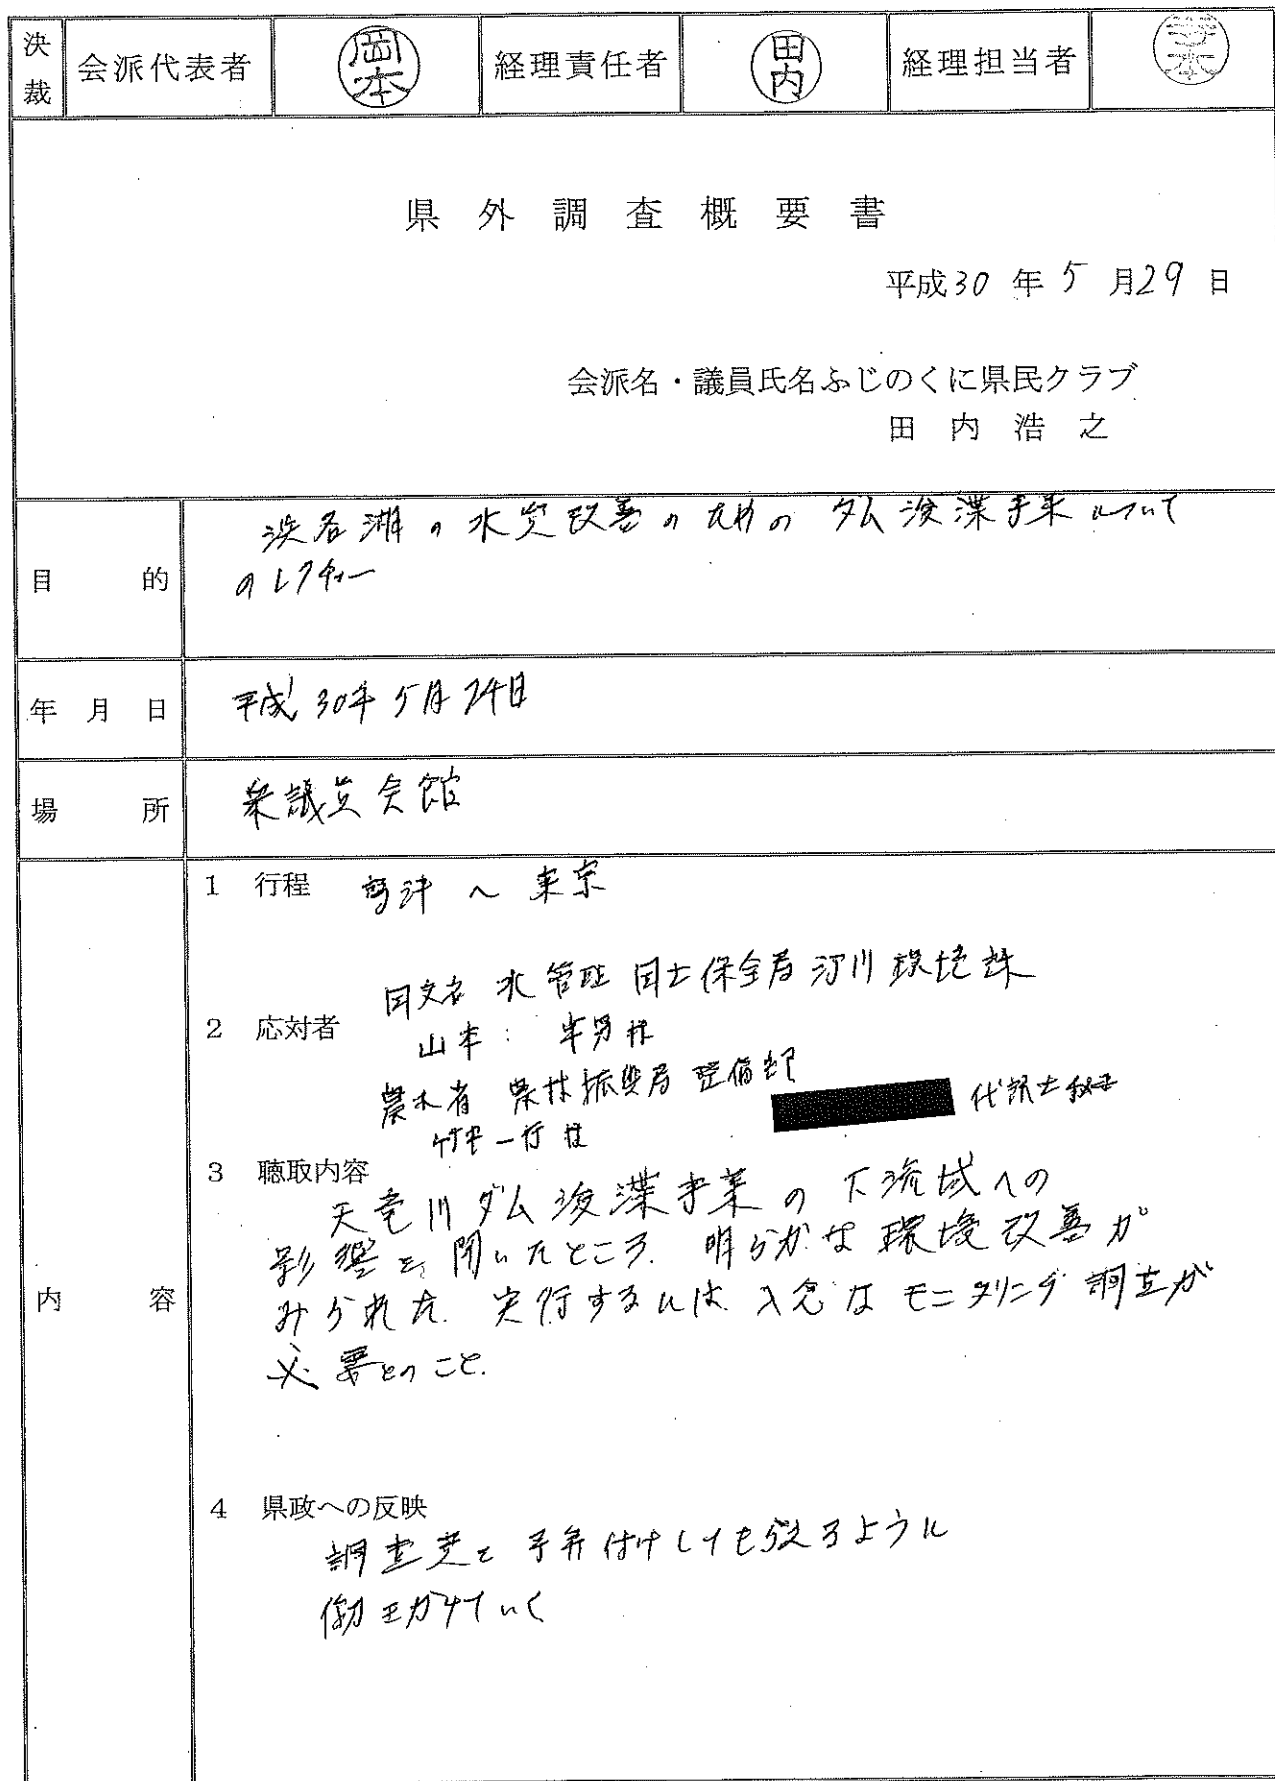 決裁 会派代表者 岡本 経理責任者 田内 経理担当者
県外調査概要書
平成30年5月29日
会派名・議員氏名ふじのくに県民クラブ
田内浩之
浜名湖の水質改善のためのダム浚渫事業について
目的
のレクチャー
年月日 平成30年5月24日
場所 衆議員会館
1 行程 鷲津〜東京
国交省 水管理国土保全局河川環境課
2 応対者
山本
農水省 農村振興局 整備部
代議士秘書
一行様
3 聴取内容
天竜川ダム浚渫事業の下流域への
影響を聞いたところ、明らかな環境改善が
内容
みられた。実行するには、入念なモニタリング調査が
必要とのこと。
4 県政への反映
調査費を予算付けしてもらえるように
働きかけていく